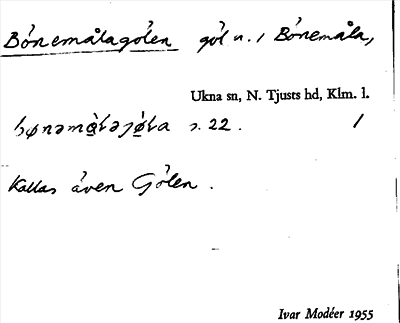 Bónemålagölen göl n. / Bónemåla,
Ukna sn, N. Tjusts hd, Klm. l.
s. 22. 1
Kallas även Gölen.
Ivar Modéer 1955